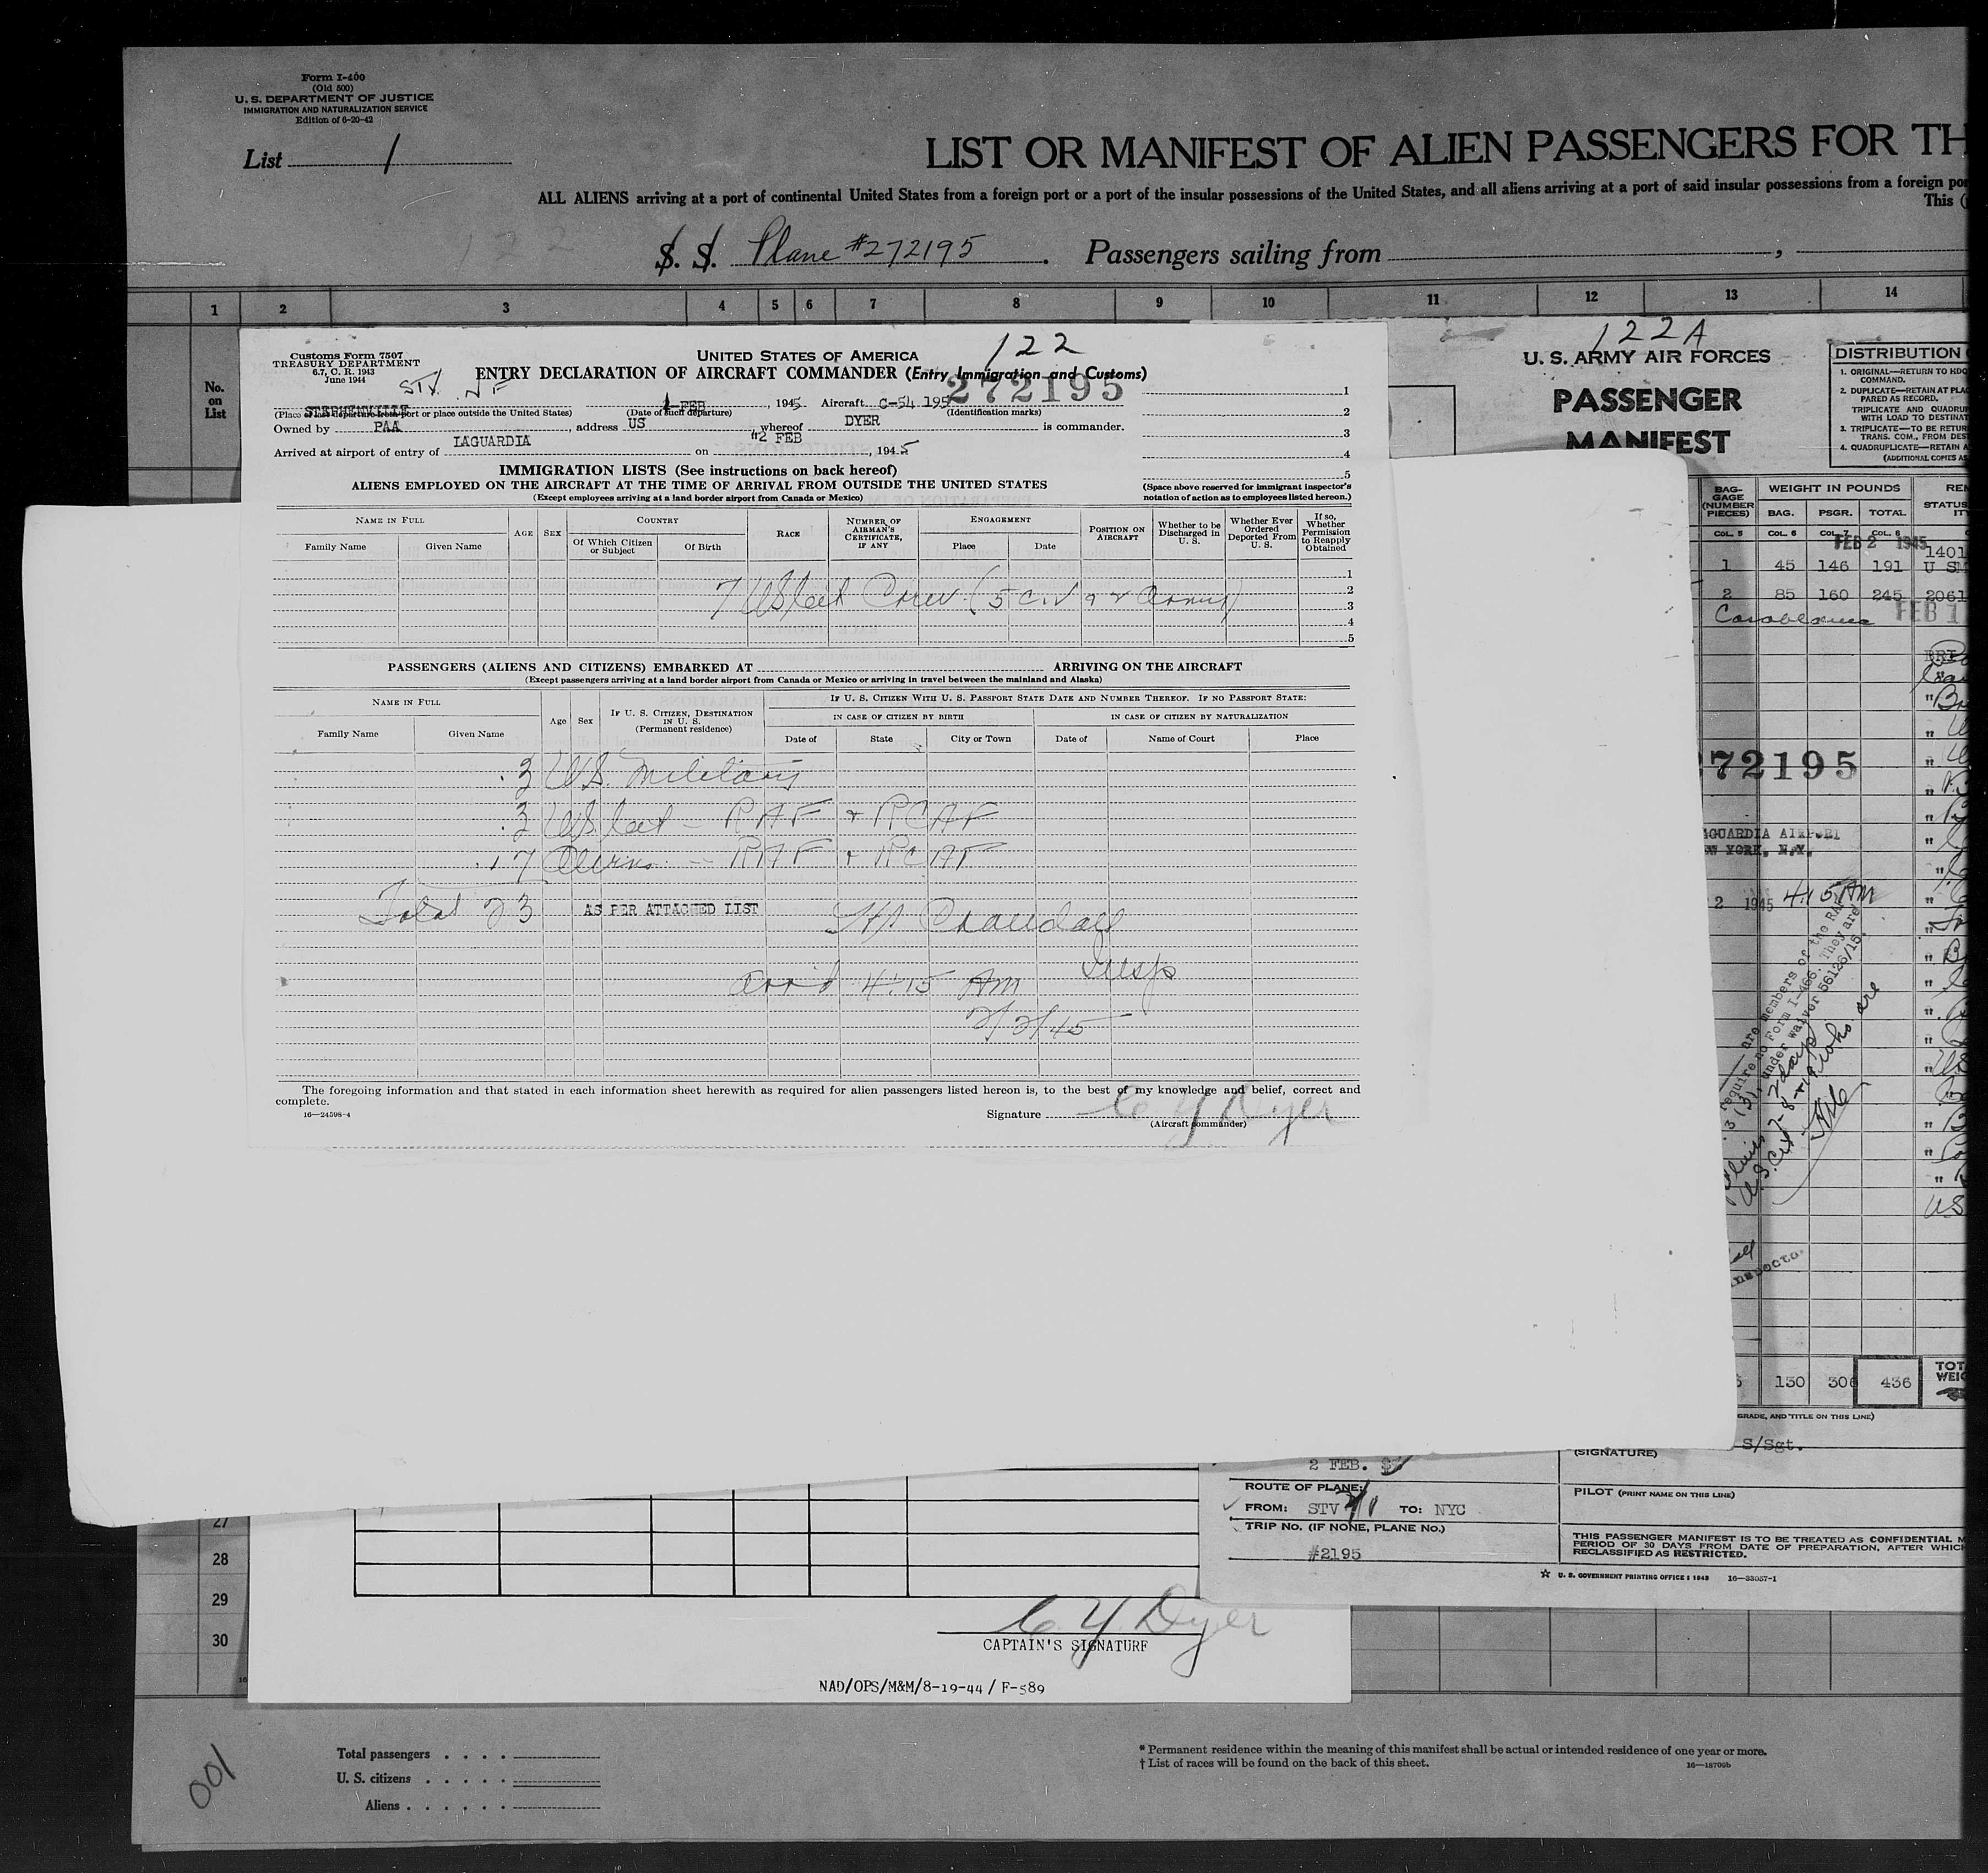 Form I-400
(Old 500)
U. S. DEPARTMENT OF JUSTICE
IMMIGRATION AND NATURALIZATION SERVICE
Edition of 6-20-42
List 1
LIST OR MANIFEST OF ALIEN PASSENGERS FOR TH
ALL ALIENS arriving at a port of continental United States from a foreign port or a port of the insular possessions of the United States, and all aliens arriving at a port of said insular possessions from a foreign por
This (
122
S. S. Plane #272195. Passengers sailing from ,
1 2 3 4 5 6 7 8 9 10 11 12 13 14
No. on List
Customs Form 7507
TREASURY DEPARTMENT
6.7, C. R. 1943
June 1944
UNITED STATES OF AMERICA
122
ENTRY DECLARATION OF AIRCRAFT COMMANDER (Entry Immigration and Customs)
272195
STV NF
STEPHENVILLE 1 FEB , 1945 Aircraft C-54 195
(Place of last departure from port or place outside the United States) (Date of such departure) (Identification marks)
Owned by PAA , address US , whereof DYER is commander.
Arrived at airport of entry of LAGUARDIA on #2 FEB , 1945
1
2
3
4
5
IMMIGRATION LISTS (See instructions on back hereof)
ALIENS EMPLOYED ON THE AIRCRAFT AT THE TIME OF ARRIVAL FROM OUTSIDE THE UNITED STATES
(Except employees arriving at a land border airport from Canada or Mexico)
(Space above reserved for immigrant inspector's
notation of action as to employees listed hereon.)
NAME IN FULL
Family Name Given Name
AGE SEX
COUNTRY
Of Which Citizen or Subject Of Birth
RACE
NUMBER OF AIRMAN'S CERTIFICATE, IF ANY
ENGAGEMENT
Place Date
POSITION ON AIRCRAFT
Whether to be Discharged in U. S.
Whether Ever Ordered Deported From U. S.
If so, Whether Permission to Reapply Obtained
1
2
3
4
5
7 US cit Crew (5 civ & 2 Army)
PASSENGERS (ALIENS AND CITIZENS) EMBARKED AT ARRIVING ON THE AIRCRAFT
(Except passengers arriving at a land border airport from Canada or Mexico or arriving in travel between the mainland and Alaska)
NAME IN FULL
Family Name Given Name
Age Sex
IF U. S. CITIZEN, DESTINATION IN U. S. (Permanent residence)
IF U. S. CITIZEN WITH U. S. PASSPORT STATE DATE AND NUMBER THEREOF. IF NO PASSPORT STATE:
IN CASE OF CITIZEN BY BIRTH IN CASE OF CITIZEN BY NATURALIZATION
Date of State City or Town Date of Name of Court Place
3 U.S. Military
3 US cit - RAF & RCAF
17 Aliens - RAF & RCAF
Total 23 AS PER ATTACHED LIST
Crandall
Insp
Arr'd 4:15 AM
2/2/45
The foregoing information and that stated in each information sheet herewith as required for alien passengers listed hereon is, to the best of my knowledge and belief, correct and
complete.
16—24598-4
Signature C Y Dyer
(Aircraft commander)
122A
U. S. ARMY AIR FORCES
PASSENGER
MANIFEST
DISTRIBUTION
1. ORIGINAL—RETURN TO HDQ
COMMAND.
2. DUPLICATE—RETAIN AT PLA
PARED AS RECORD.
TRIPLICATE AND QUADRU
WITH LOAD TO DESTINAT
3. TRIPLICATE—TO BE RETUR
TRANS. COM., FROM DES
4. QUADRUPLICATE—RETAIN A
(ADDITIONAL COPIES AS
BAGGAGE (NUMBER PIECES)
WEIGHT IN POUNDS
BAG. PSGR. TOTAL
REM
STATUS
COL. 5 COL. 6 COL. 7 COL. 8
FEB 2 1945
1401
1 45 146 191 U SN
2 85 160 245 2061
Casablanca FEB 1
272195
AGUARDIA AIRPORT
NEW YORK, N.Y.
2 1945 4:15 AM
are members of the RAF
require no Form I-466. They are
3 (3), under waiver 56126/15.
Inspector
130 306 436
TOT
WEIG
GRADE, AND TITLE ON THIS LINE)
S/Sgt.
(SIGNATURE)
2 FEB.
ROUTE OF PLANE:
FROM: STV TO: NYC
TRIP No. (IF NONE, PLANE No.)
#2195
PILOT (PRINT NAME ON THIS LINE)
THIS PASSENGER MANIFEST IS TO BE TREATED AS CONFIDENTIAL
PERIOD OF 30 DAYS FROM DATE OF PREPARATION, AFTER WHICH
RECLASSIFIED AS RESTRICTED.
☆ U. S. GOVERNMENT PRINTING OFFICE : 1943 16—33057-1
27
28
29
30
C Y Dyer
CAPTAIN'S SIGNATURE
NAD/OPS/M&M/8-19-44 / F-589
Total passengers
U. S. citizens
Aliens
* Permanent residence within the meaning of this manifest shall be actual or intended residence of one year or more.
† List of races will be found on the back of this sheet.
16—18706b
001